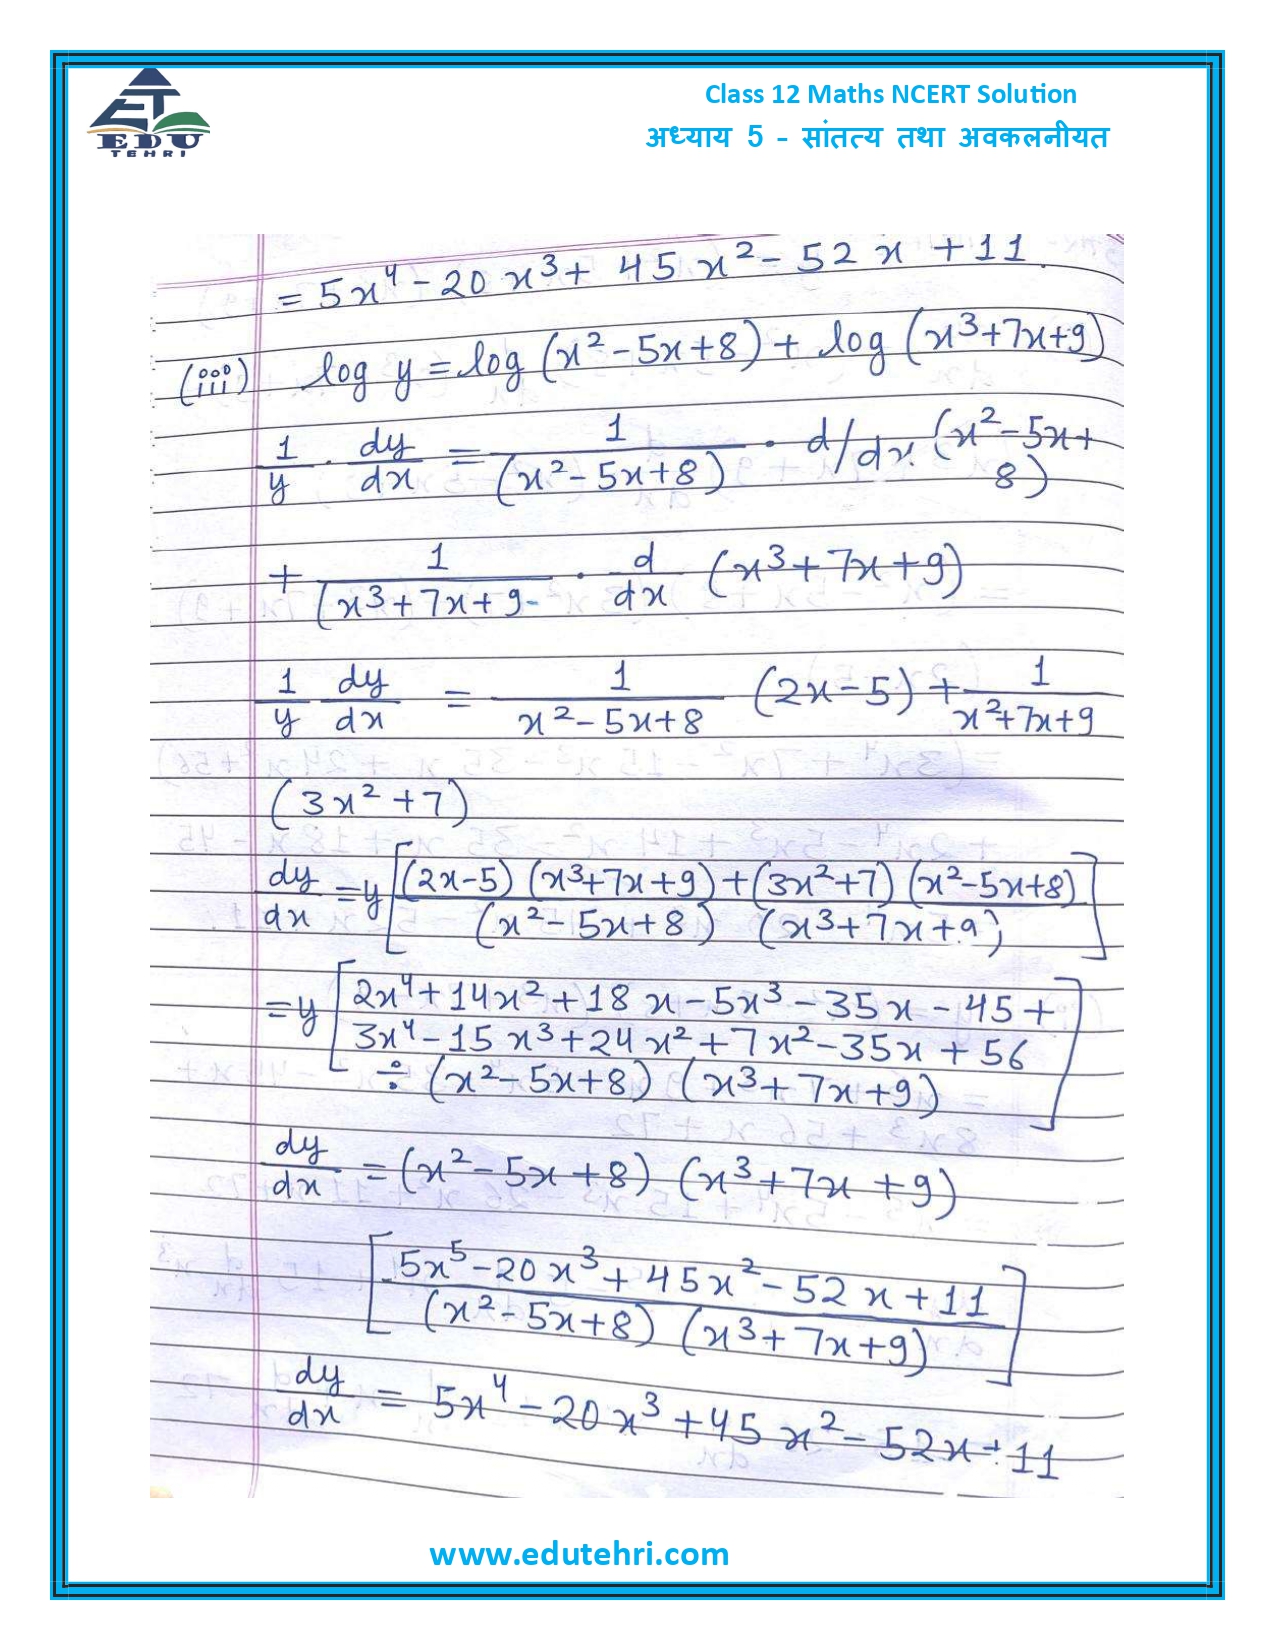 EDU
TEHRI
Class 12 Maths NCERT Solution
अध्याय 5 - सांतत्य तथा अवकलनीयत
= 5x⁴ - 20x³ + 45x² - 52x + 11.
(iii) log y = log (x² - 5x + 8) + log (x³ + 7x + 9)
1/y · dy/dx = 1/(x² - 5x + 8) · d/dx (x² - 5x + 8)
+ 1/(x³ + 7x + 9 · d/dx (x³ + 7x + 9)
1/y dy/dx = 1/x² - 5x + 8 (2x - 5) + 1/x² + 7x + 9
(3x² + 7)
dy/dx = y [(2x - 5) (x³ + 7x + 9) + (3x² + 7) (x² - 5x + 8) / (x² - 5x + 8) (x³ + 7x + 9)]
= y [2x⁴ + 14x² + 18x - 5x³ - 35x - 45 +
3x⁴ - 15x³ + 24x² + 7x² - 35x + 56
÷ (x² - 5x + 8) (x³ + 7x + 9)]
dy/dx = (x² - 5x + 8) (x³ + 7x + 9)
[5x⁵ - 20x³ + 45x² - 52x + 11 / (x² - 5x + 8) (x³ + 7x + 9)]
dy/dx = 5x⁴ - 20x³ + 45x² - 52x + 11
www.edutehri.com